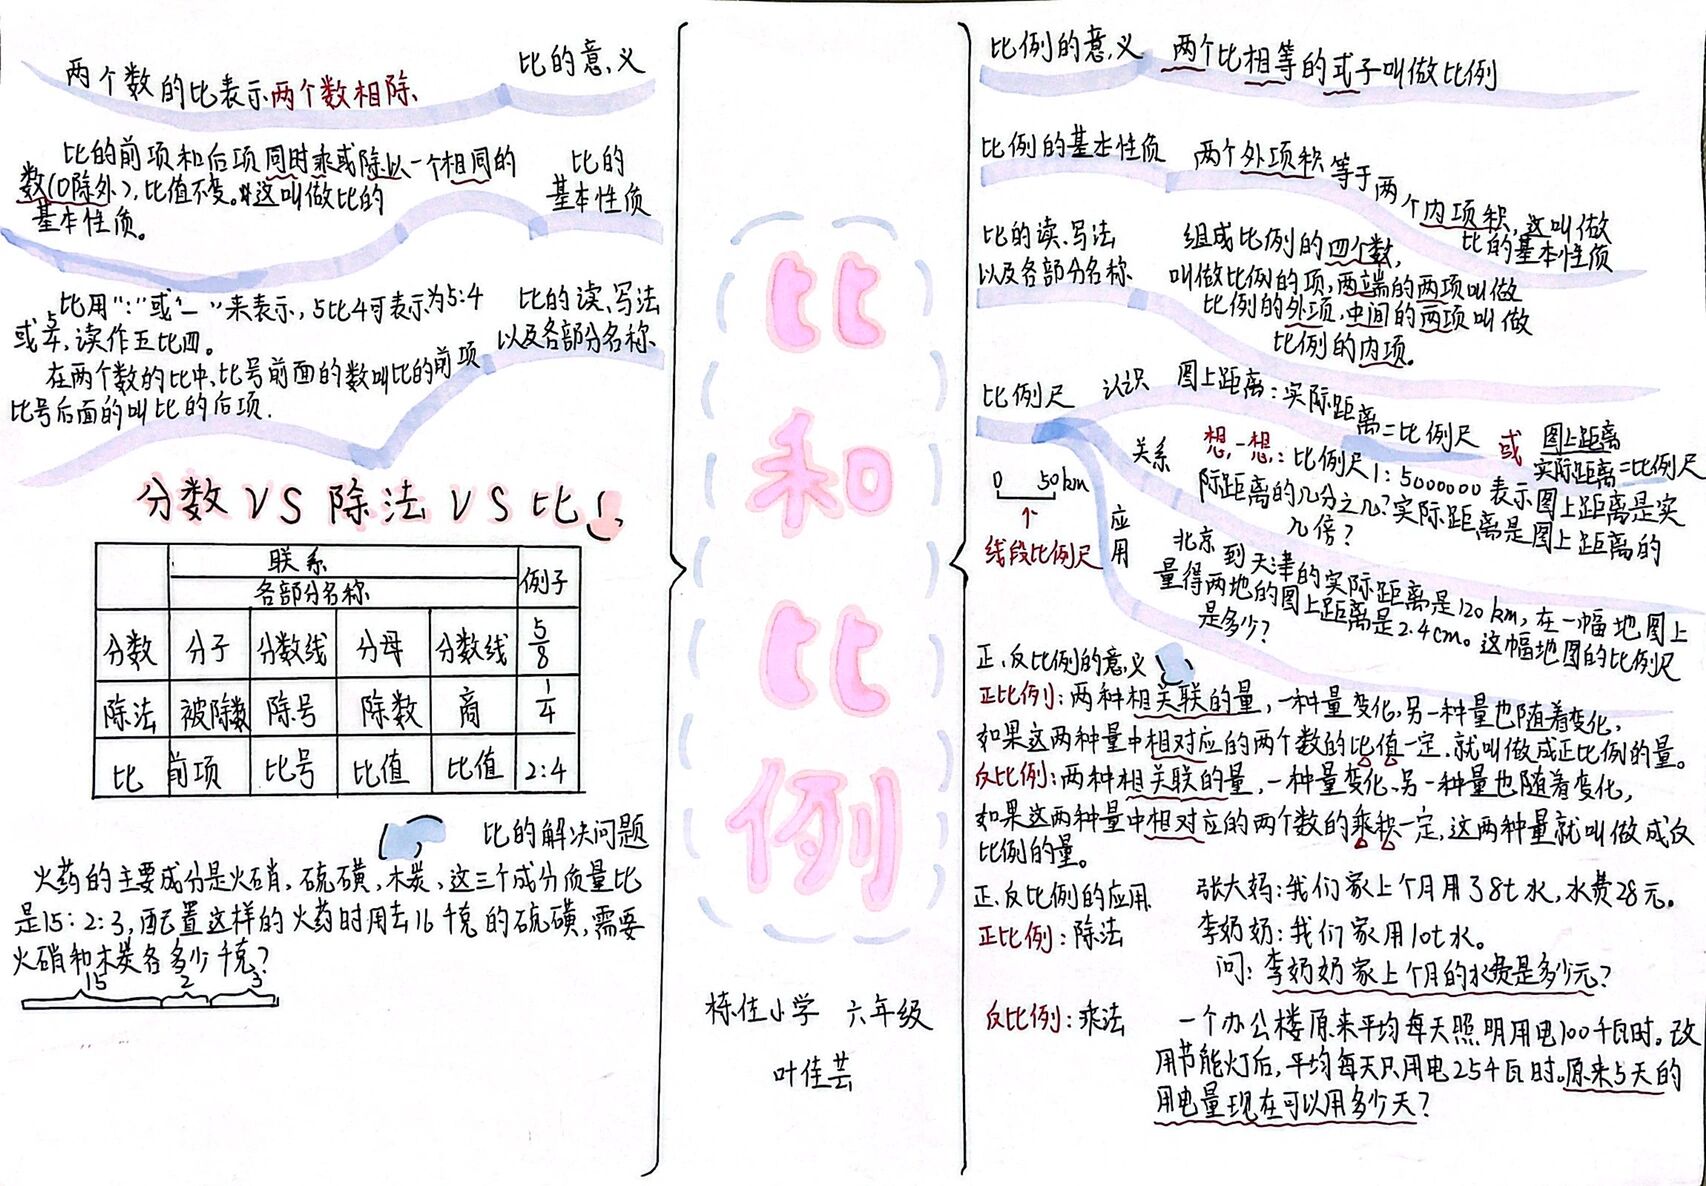 两个数的比表示两个数相除
比的意义
比的前项和后项同时乘或除以一个相同的
数(0除外),比值不变。这叫做比的
基本性质。
比的
基本性质
比用":"或"—"来表示,5比4可表示为5:4
或5/4,读作五比四。
在两个数的比中、比号前面的数叫比的前项
比号后面的叫比的后项.
比的读、写法
以及各部分名称
分数 VS 除法 VS 比
联系
例子
各部分名称
分数 分子 分数线 分母 分数线 5/8
除法 被除数 除号 除数 商 1/4
比 前项 比号 比值 比值 2:4
比的解决问题
火药的主要成分是火硝,硫磺,木炭,这三个成分质量比
是15:2:3,配置这样的火药时用去16千克的硫磺,需要
火硝和木炭各多少千克?
15 2 3
比
和
比
例
栋佳小学 六年级
叶佳芸
比例的意义 两个比相等的式子叫做比例
比例的基本性质 两个外项积等于两个内项积,这叫做
比的基本性质
比的读、写法
以及各部分名称
组成比例的四个数,
叫做比例的项,两端的两项叫做
比例的外项,中间的两项叫做
比例的内项。
比例尺 认识 图上距离:实际距离=比例尺 或 图上距离/实际距离=比例尺
关系 想一想:比例尺1:5000000表示图上距离是实
际距离的几分之几?实际距离是图上距离的
几倍?
0 50km
线段比例尺
应用
北京到天津的实际距离是120km,在一幅地图上
量得两地的图上距离是2.4cm。这幅地图的比例尺
是多少?
正、反比例的意义
正比例:两种相关联的量,一种量变化,另一种量也随着变化,
如果这两种量中相对应的两个数的比值一定.就叫做成正比例的量。
反比例:两种相关联的量,一种量变化、另一种量也随着变化,
如果这两种量中相对应的两个数的乘积一定,这两种量就叫做成反
比例的量。
正、反比例的应用
正比例:除法
张大妈:我们家上个月用了8t水,水费28元。
李奶奶:我们家用10t水。
问:李奶奶家上个月的水费是多少元?
反比例:乘法
一个办公楼原来平均每天照明用电100千瓦时。改
用节能灯后,平均每天只用电25千瓦时。原来5天的
用电量现在可以用多少天?